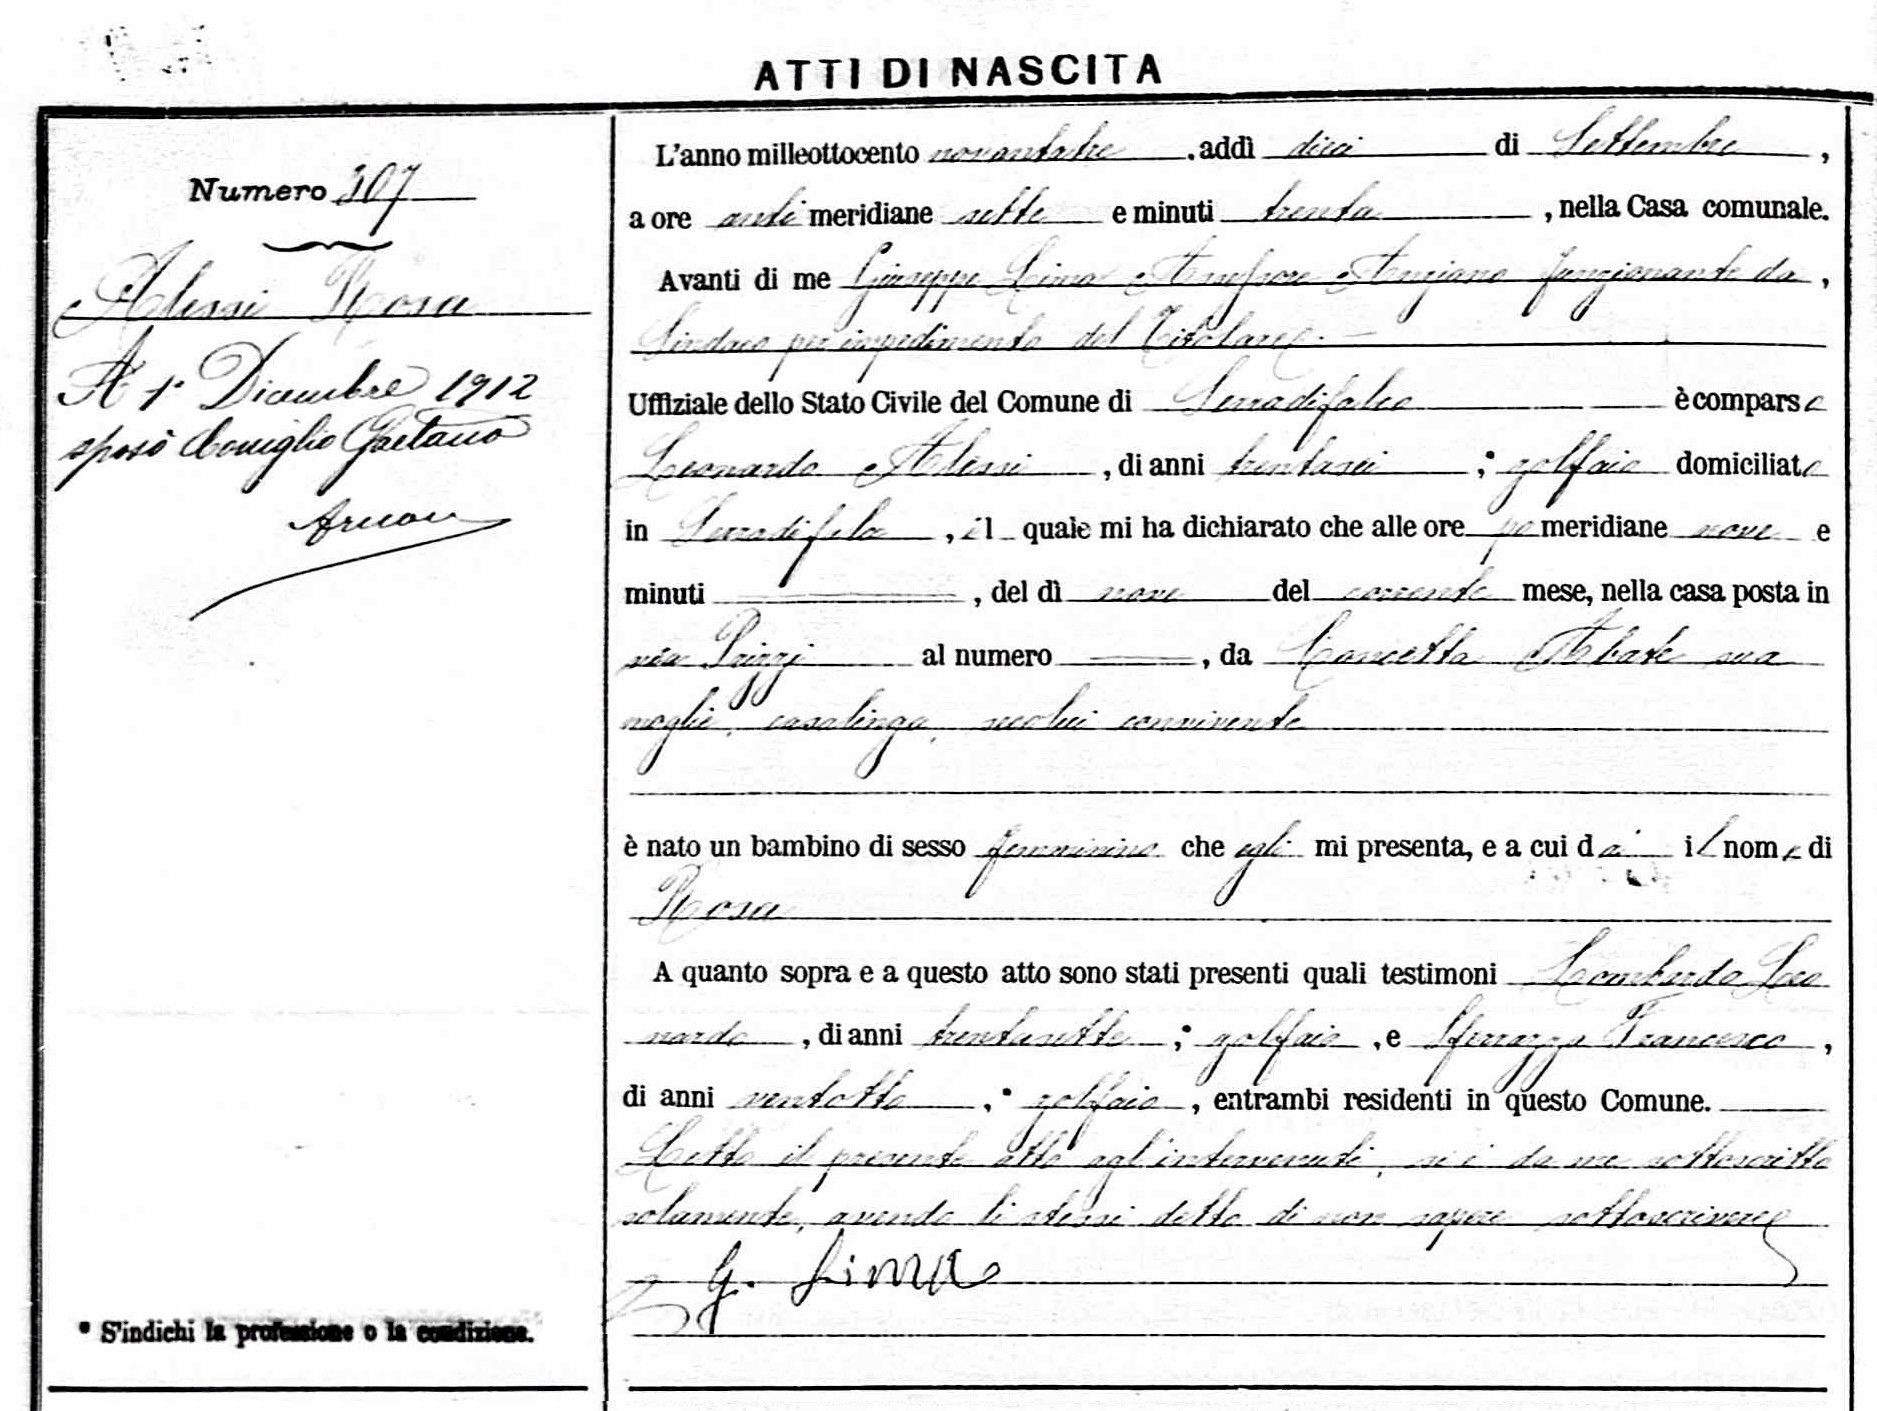 ATTI DI NASCITA
Numero 307
Alessi Rosa
A 1° Dicembre 1912
sposò Coniglio Gaetano
* S'indichi la professione o la condizione.
L'anno milleottocento novantatre, addì dieci di Settembre,
a ore anti meridiane sette e minuti trenta, nella Casa comunale.
Avanti di me Giuseppe Lima Assessore Anziano funzionante da,
Sindaco per impedimento del Titolare.
Uffiziale dello Stato Civile del Comune di Serradifalco è comparso
Leonardo Alessi, di anni trentasei, * zolfaio domiciliato
in Serradifalco, il quale mi ha dichiarato che alle ore po meridiane nove e
minuti, del dì nove del corrente mese, nella casa posta in
via Prizzi al numero, da Concetta Abate sua
moglie, casalinga, seco lui convivente
è nato un bambino di sesso femminino che egli mi presenta, e a cui dà il nome di
Rosa
A quanto sopra e a questo atto sono stati presenti quali testimoni Lombardo Leo
nardo, di anni trentasette, * zolfaio, e Sferrazza Francesco,
di anni ventotto, * zolfaio, entrambi residenti in questo Comune.
Letto il presente atto agl'intervenuti, si è da me sottoscritto
solamente, avendo li stessi detto di non sapere sottoscrivere
G. Lima